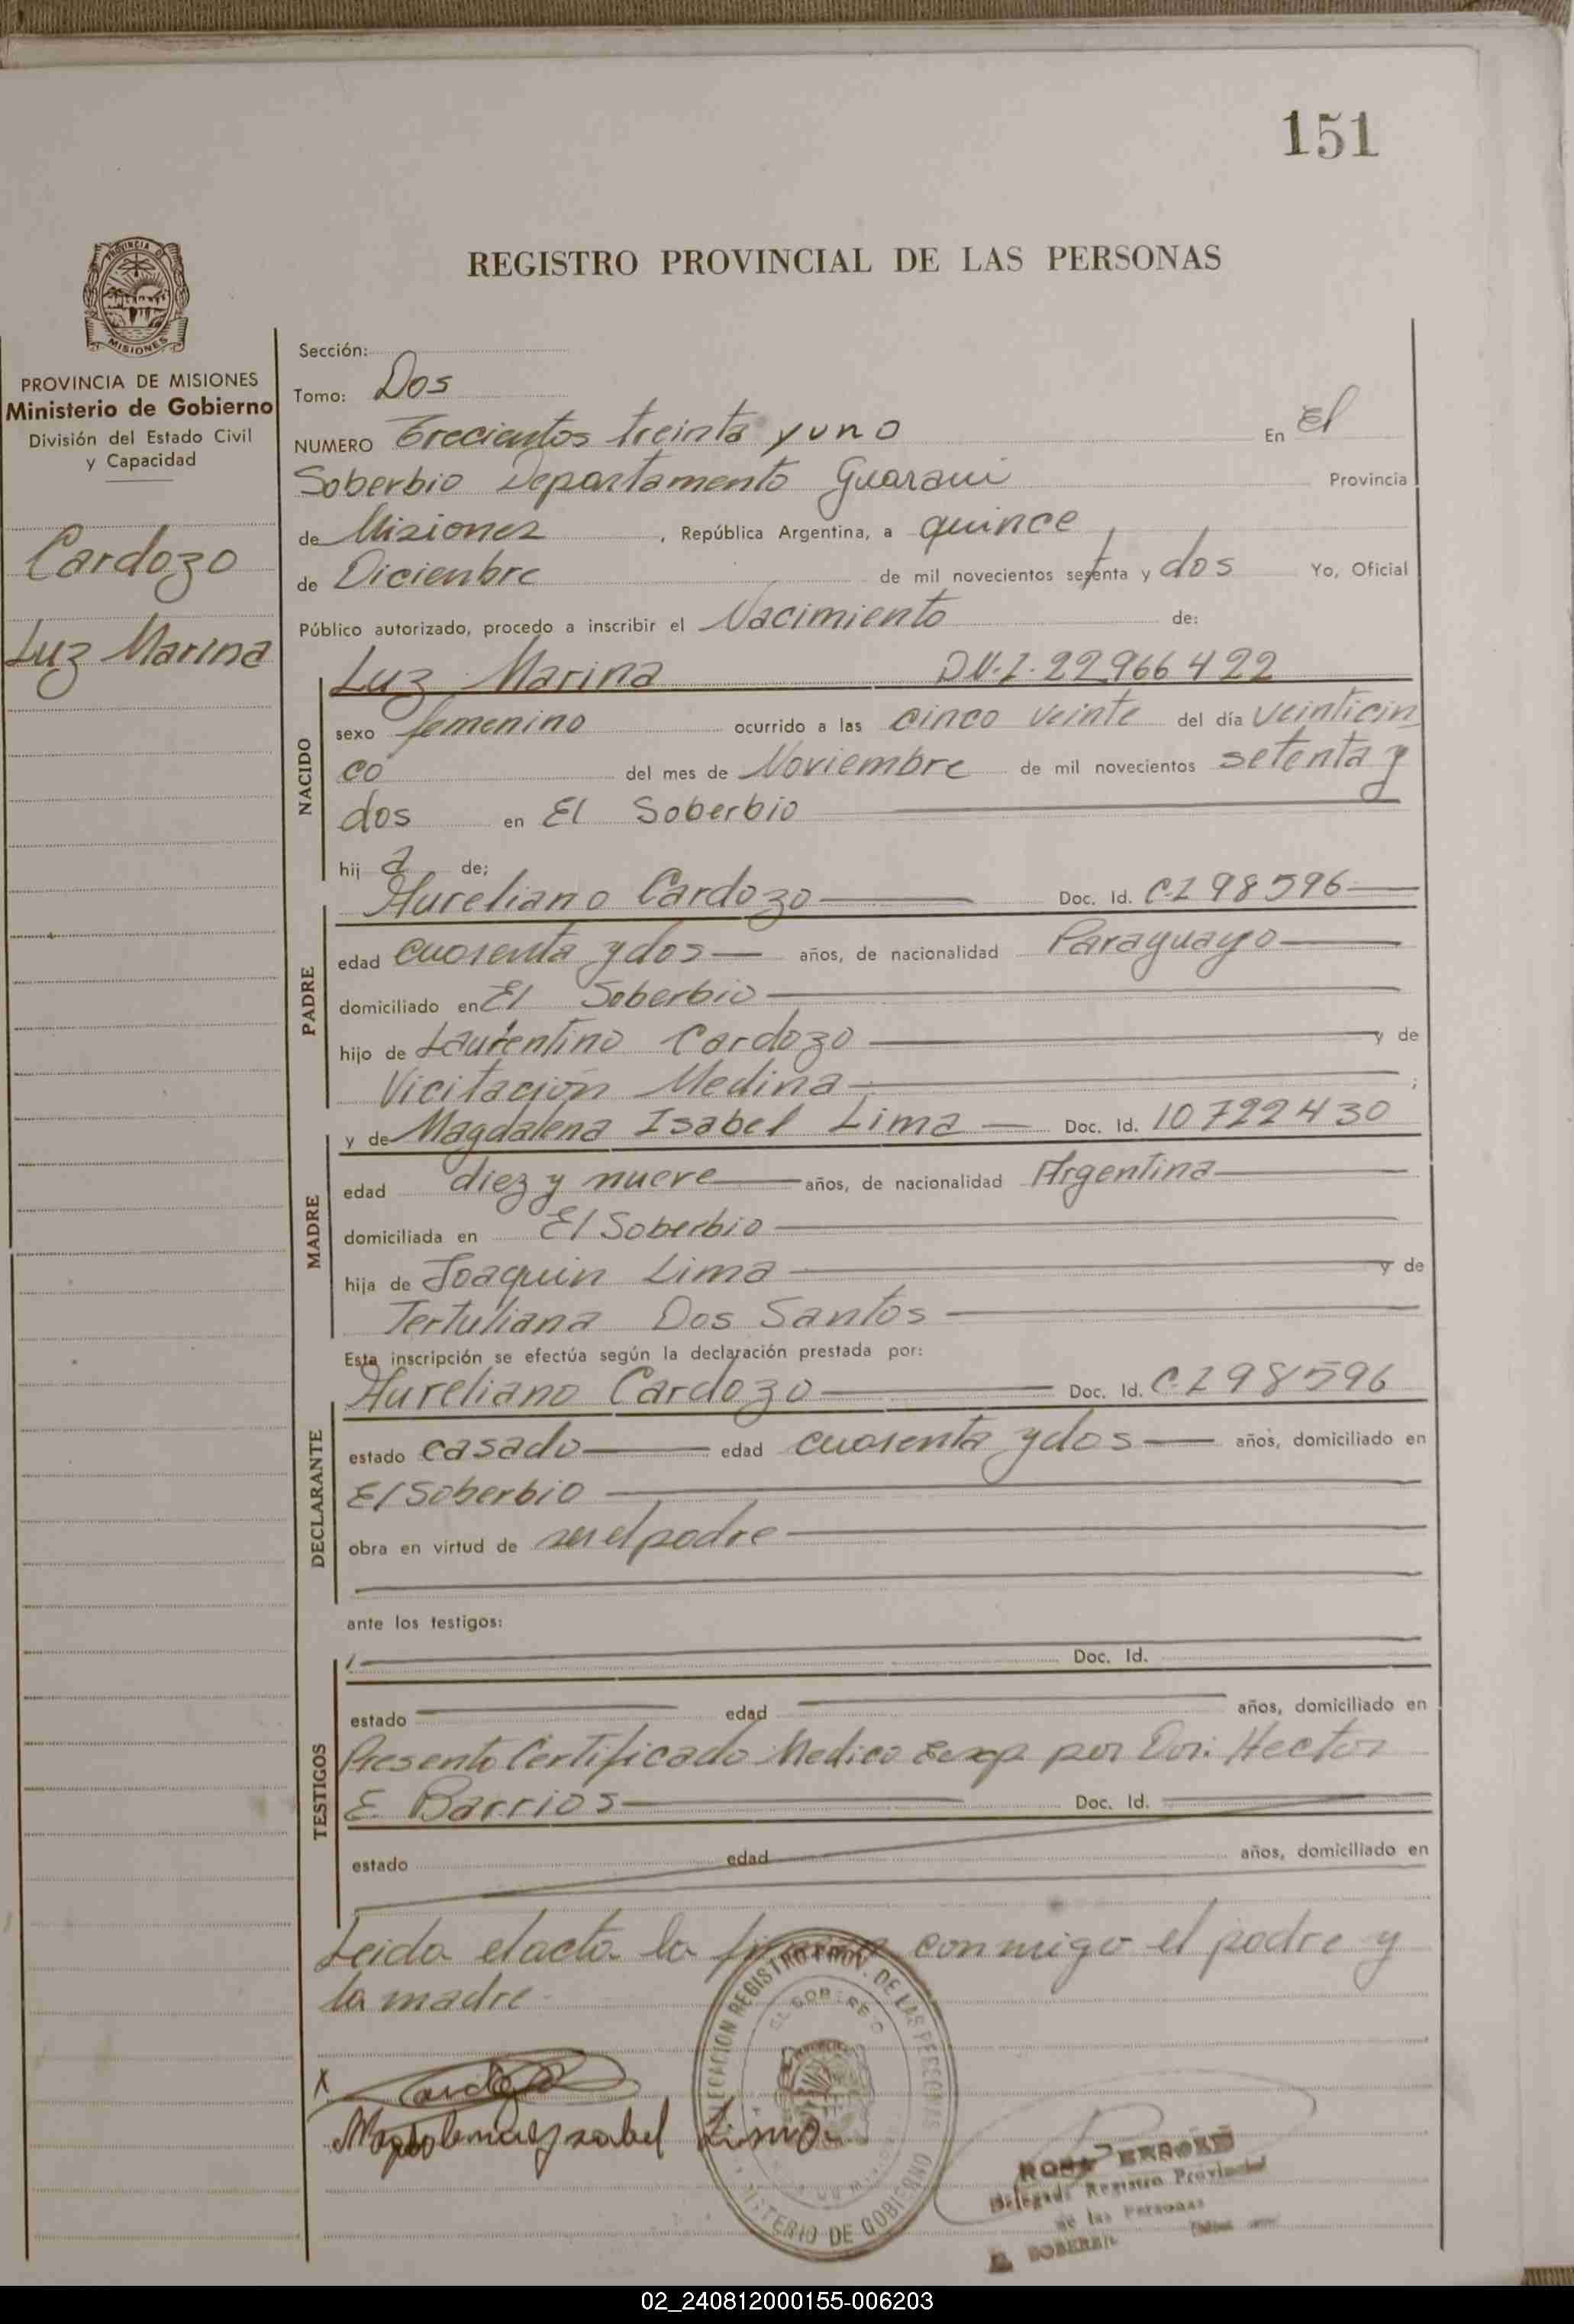 151
PROVINCIA DE
MISIONES
REGISTRO PROVINCIAL DE LAS PERSONAS
PROVINCIA DE MISIONES
Ministerio de Gobierno
División del Estado Civil
y Capacidad
Cardozo
Luz Marina
Sección:
Tomo: Dos
NUMERO Trecientos treinta y uno En El
Soberbio Departamento Guarani Provincia
de Misiones, República Argentina, a quince
de Diciembre de mil novecientos setenta y dos Yo, Oficial
Público autorizado, procedo a inscribir el Nacimiento de:
NACIDO
Luz Marina D.N.I. 22966422
sexo femenino ocurrido a las cinco veinte del día veinticin
co del mes de Noviembre de mil novecientos setenta y
dos en El Soberbio
hij a de;
PADRE
Aureliano Cardozo Doc. Id. C.I 98596
edad cuarenta y dos años, de nacionalidad Paraguayo
domiciliado en El Soberbio
hijo de Laurentino Cardozo y de
Vicitación Medina ;
MADRE
y de Magdalena Isabel Lima Doc. Id. 10722430
edad diez y nueve años, de nacionalidad Argentina
domiciliada en El Soberbio
hija de Joaquin Lima y de
Tertuliana Dos Santos
Esta inscripción se efectúa según la declaración prestada por:
DECLARANTE
Aureliano Cardozo Doc. Id. C.I 98596
estado casado edad cuarenta y dos años, domiciliado en
El Soberbio
obra en virtud de ser el padre
ante los testigos:
TESTIGOS
Doc. Id.
estado edad años, domiciliado en
Presento Certificado Medico exp por Dor. Hector
E. Barrios Doc. Id.
estado edad años, domiciliado en
Leida el acta la firman conmigo el padre y
la madre
x Cardozo
Magdalena Isabel Lima
DELEGACION REGISTRO PROV. DE LAS PERSONAS
EL SOBERBIO
MINISTERIO DE GOBIERNO
ROSA
Delegada Registro Provincial
de las Personas
EL SOBERBIO
02_240812000155-006203